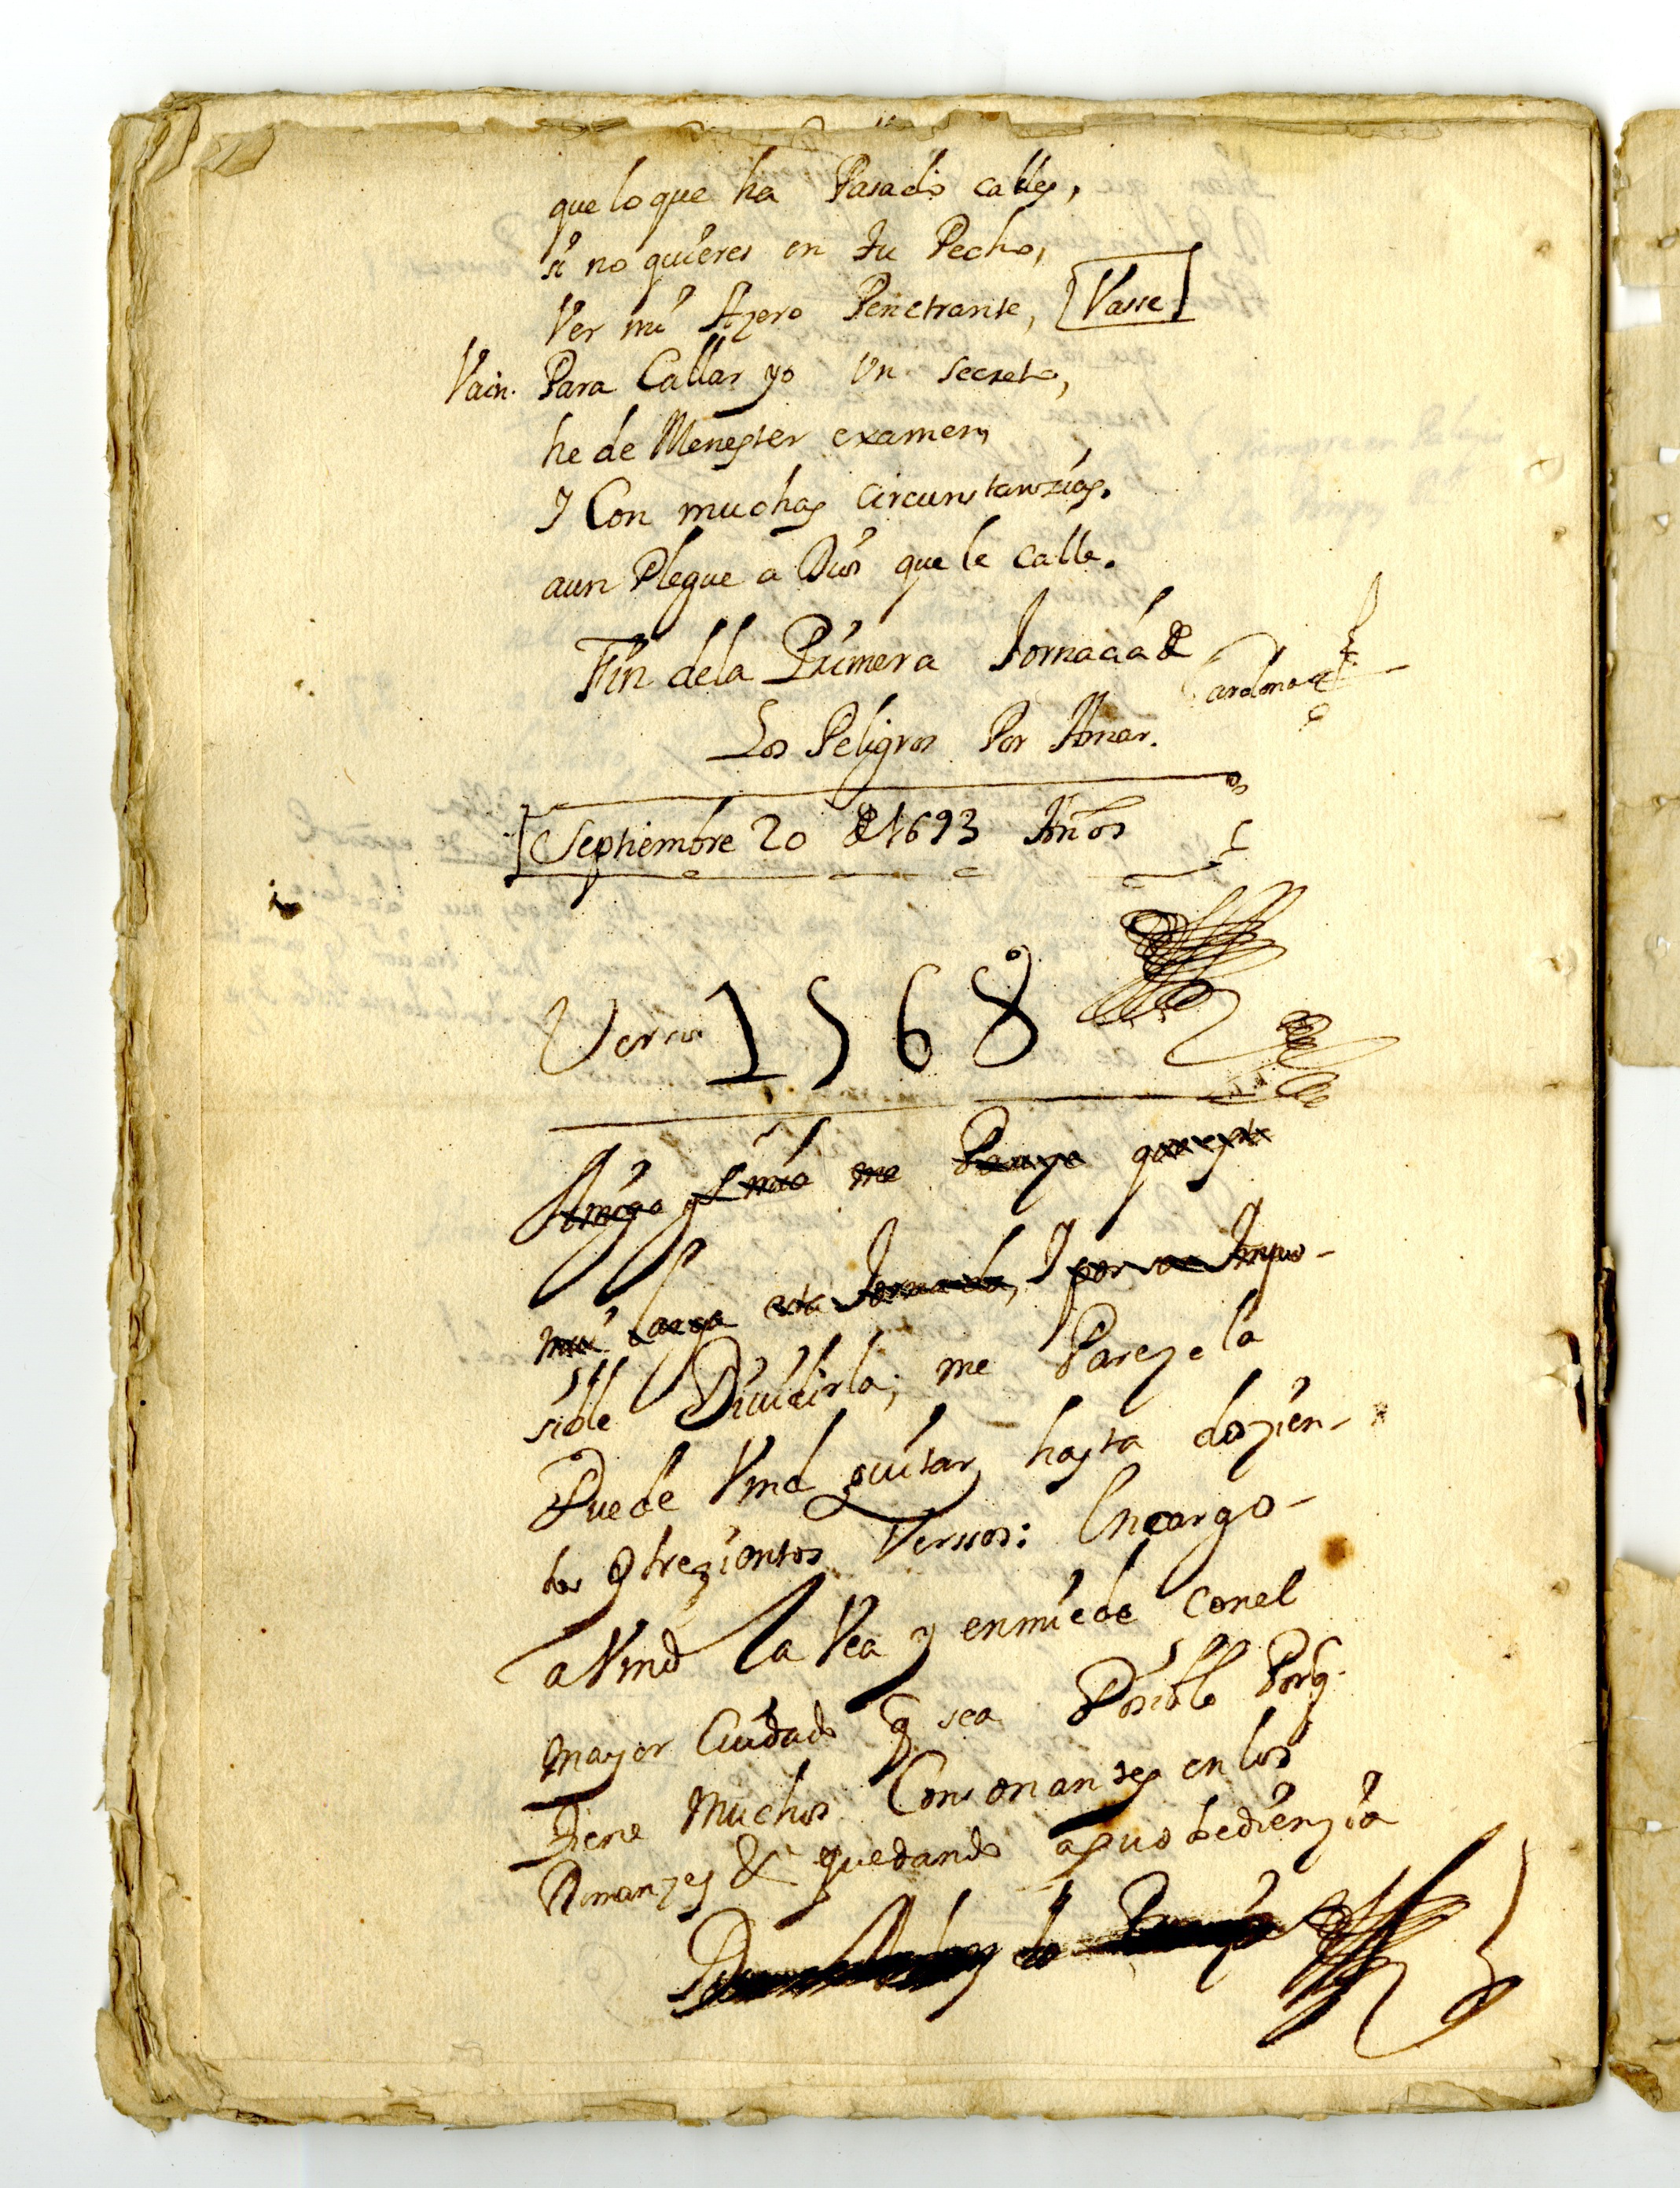 que lo que ha Pasado calles,
si no quieres en tu Pecho,
Ver mi Azero Penetrante, [Vasse]
Vain. Para Callar yo Un secreto,
he de Menester examen,
I Con muchas circunstanzias.
aun Plegue a Dios que le calle.
Fin dela Primera Jornada de
Cardona
Los Peligros Por Amar.
Septiembre 20 de 1693 Años
Versos 1568
Amigo y S. mio me Pareze que esta
mui larga esta Jornada, I por ser Impo-
sible Diuidirla; me Pareze la
Puede Vmd quitar hasta dozien-
tos o trezientos Verssos: Encargo-
a Vmd la Vea y enmiede con el
mayor Cuidado q sea Posible Porq.
Tiene Muchos Consonantes en los
Romanzes &c quedando a su obedienzia